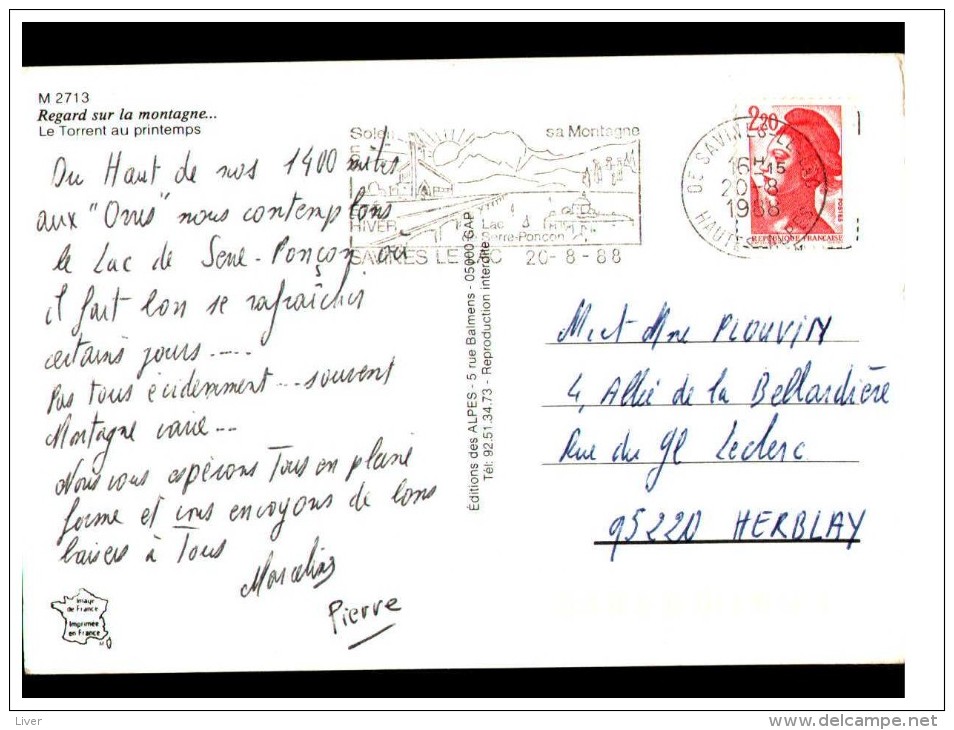 M 2713
Regard sur la montagne...
Le Torrent au printemps
Du Haut de nos 1400 mètres
aux "Orres" nous contemplons
le Lac de Serre-Ponçon où
il fait bon se rafraîchir
certains jours .....
Pas tous évidemment ... souvent
Montagne varie ...
Nous vous espérons Tous en pleine
forme et vous envoyons de bons
baisers à Tous
Pierre
Image
de France
Imprimée
en France
Soleil
sa Montagne
HIVER
Lac
Serre-Ponçon
SAVINES LE LAC 20-8-88
Éditions des ALPES - 5 rue Balmens - 05000 GAP
Tél: 92.51.34.73 - Reproduction interdite
DE SAVINES-LE-LAC
16H45
20-8
1988
HAUTES-ALPES
2,20
POSTES
REPUBLIQUE FRANCAISE
M et Mme PLOUVIN
4, Allée de la Bellardière
Rue du Gl Leclerc
95220 HERBLAY
Liver
delcampe.net